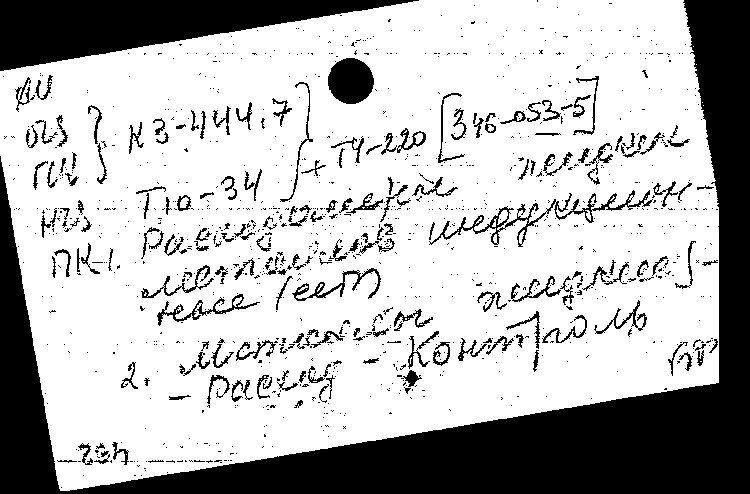 К3-444.7
Т10-34 + Т4-220 [346-053-5]
ПК-1. Расходомеры жидких
металлов индукцион-
ные (ест)
2. Металлы жидкие
- Расход - Контроль